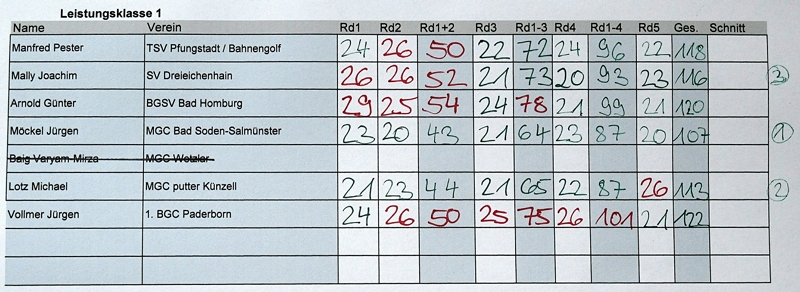 Leistungsklasse 1
Name Verein Rd1 Rd2 Rd1+2 Rd3 Rd1-3 Rd4 Rd1-4 Rd5 Ges. Schnitt
Manfred Pester TSV Pfungstadt / Bahnengolf 24 26 50 22 72 24 96 22 118
Mally Joachim SV Dreieichenhain 26 26 52 21 73 20 93 23 116 3
Arnold Günter BGSV Bad Homburg 29 25 54 24 78 21 99 21 120
Möckel Jürgen MGC Bad Soden-Salmünster 23 20 43 21 64 23 87 20 107 1
Baig Varyam Mirza MGC Wetzlar
Lotz Michael MGC putter Künzell 21 23 44 21 65 22 87 26 113 2
Vollmer Jürgen 1. BGC Paderborn 24 26 50 25 75 26 101 21 122